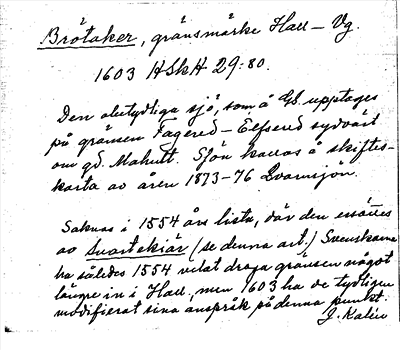 Brötaker, gränsmärke Hall – Vg.
1603 HSkH 29:80.
Den obetydliga sjö, som å GS. upptages
på gränsen Fagered – Elfsered sydväst
om gd. Mahult. Sjön kallas å skiftes-
karta av åren 1873–76 Kvarnsjön.
Saknas i 1554 års lista, där den ersättes
av Svartekiär (se denna art.) Svenskarna
ha således 1554 velat draga gränsen något
längre in i Hall., men 1603 ha de tydligen
modifierat sina anspråk på denna punkt.
J. Kalén